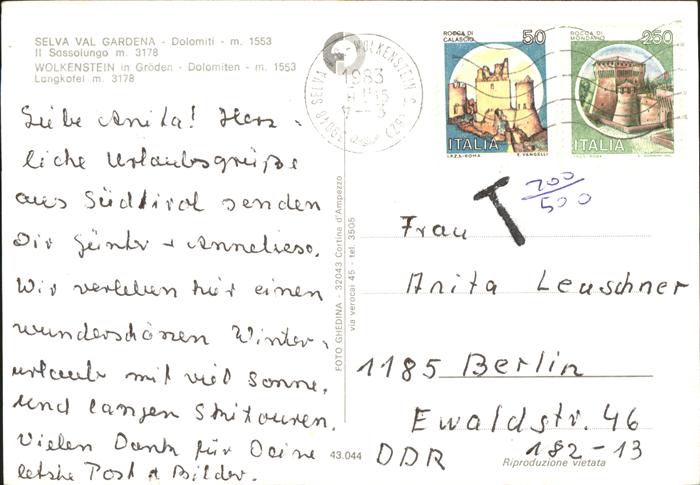 SELVA VAL GARDENA - Dolomiti - m. 1553
Il Sassolungo m. 3178
WOLKENSTEIN in Gröden - Dolomiten - m. 1553
Langkofel m. 3178
Liebe Anita! Herz-
liche Urlaubsgrüße
aus Südtirol senden
Dir Günter + Annelies.
Wir verleben hier einen
wunderschönen Winter-
urlaub mit viel Sonne,
und langen Skitouren.
Vielen Dank für Deine
letzte Post + Bilder.
43.044
FOTO GHEDINA - 32043 Cortina d'Ampezzo
via verocai 45 - tel. 3505
SELVA WOLKENSTEIN
1983
ROCCA DI CALASCIO
50
ITALIA
I.P.Z.S.-ROMA E. VANGELLI
ROCCA DI MONDAVIO
250
ITALIA
T
200
500
Frau
Anita Leuschner
1185 Berlin
Ewaldstr. 46
182-13
DDR
Riproduzione vietata